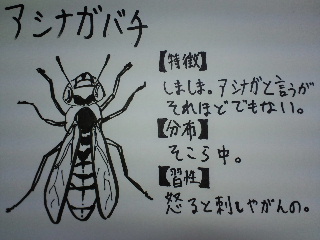 アシナガバチ
【特徴】
しましま。アシナガと言うが
それほどでもない。
【分布】
そこら中。
【習性】
怒ると刺しやがんの。